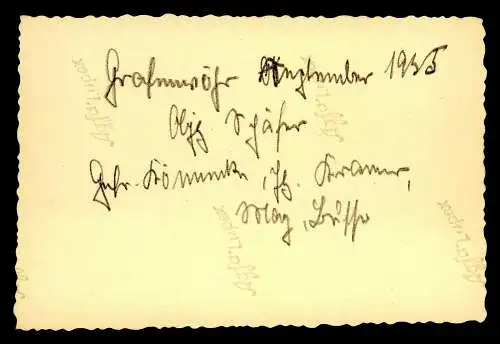 Grafenwöhr September 1935
Ogfr. Schäfer
Gefr. Könnecke, Kramer,
May, Busse
Agfa Lupex
Agfa Lupex
Agfa Lupex
Agfa Lupex